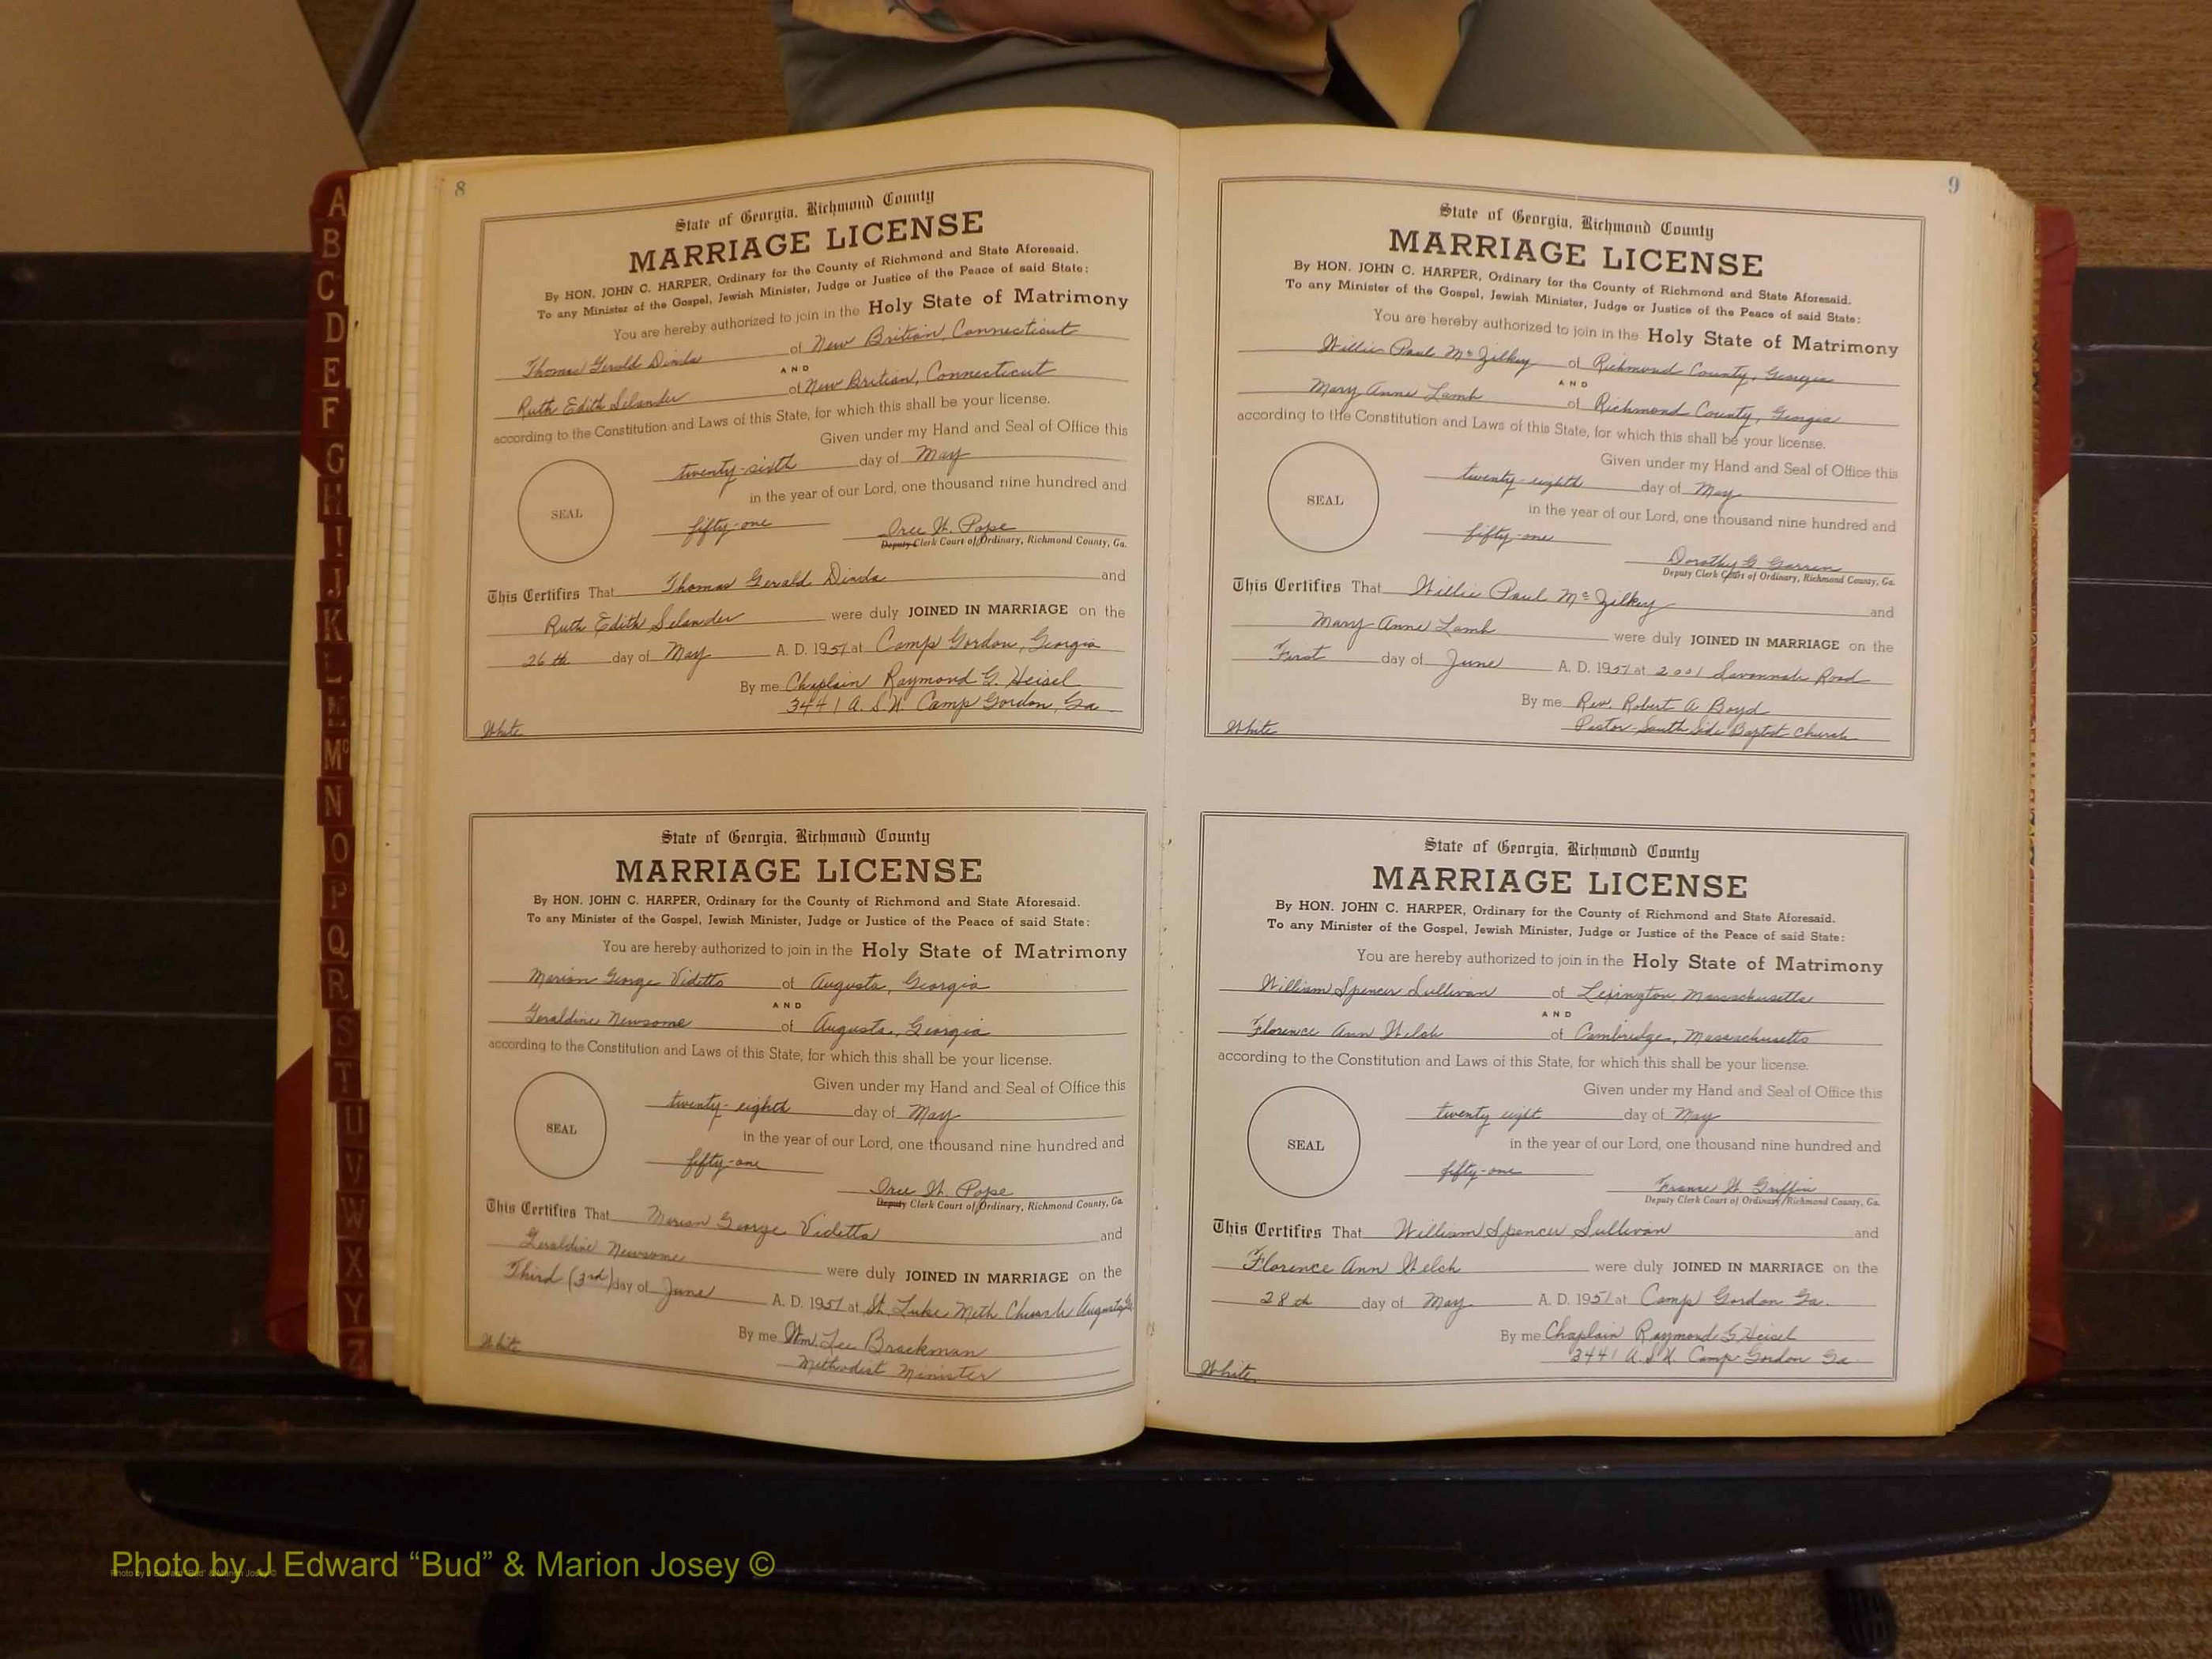 8
State of Georgia, Richmond County
MARRIAGE LICENSE
By HON. JOHN C. HARPER, Ordinary for the County of Richmond and State Aforesaid.
To any Minister of the Gospel, Jewish Minister, Judge or Justice of the Peace of said State:
You are hereby authorized to join in the Holy State of Matrimony
Thomas Gerald Dinda of New Britian, Connecticut
AND
Ruth Edith Selander of New Britian, Connecticut
according to the Constitution and Laws of this State, for which this shall be your license.
Given under my Hand and Seal of Office this
twenty-sixth day of May
in the year of our Lord, one thousand nine hundred and
SEAL
fifty-one Pope
Deputy Clerk Court of Ordinary, Richmond County, Ga.
This Certifies That Thomas Gerald Dinda and
Ruth Edith Selander were duly JOINED IN MARRIAGE on the
26th day of May A. D. 1951 at Camp Gordon, Georgia
By me Chaplain Raymond G. Heisel
3441 A.S.U. Camp Gordon, Ga.
White
State of Georgia, Richmond County
MARRIAGE LICENSE
By HON. JOHN C. HARPER, Ordinary for the County of Richmond and State Aforesaid.
To any Minister of the Gospel, Jewish Minister, Judge or Justice of the Peace of said State:
You are hereby authorized to join in the Holy State of Matrimony
Marion George Videtto of Augusta, Georgia
AND
Geraldine Newsome of Augusta, Georgia
according to the Constitution and Laws of this State, for which this shall be your license.
Given under my Hand and Seal of Office this
twenty-eighth day of May
SEAL
in the year of our Lord, one thousand nine hundred and
fifty-one Pope
Deputy Clerk Court of Ordinary, Richmond County, Ga.
This Certifies That Marion George Videtto and
Geraldine Newsome were duly JOINED IN MARRIAGE on the
Third (3rd) day of June A. D. 1951 at St. Luke Meth Church Augusta, Ga
By me Wm. Lee Brackman
Methodist Minister
White
9
State of Georgia, Richmond County
MARRIAGE LICENSE
By HON. JOHN C. HARPER, Ordinary for the County of Richmond and State Aforesaid.
To any Minister of the Gospel, Jewish Minister, Judge or Justice of the Peace of said State:
You are hereby authorized to join in the Holy State of Matrimony
Willie Paul of Richmond County, Georgia
AND
Mary Anne Lamb of Richmond County, Georgia
according to the Constitution and Laws of this State, for which this shall be your license.
Given under my Hand and Seal of Office this
twenty-eighth day of May
SEAL
in the year of our Lord, one thousand nine hundred and
fifty-one
Dorothy G.
Deputy Clerk Court of Ordinary, Richmond County, Ga.
This Certifies That Willie Paul and
Mary Anne Lamb were duly JOINED IN MARRIAGE on the
First day of June A. D. 1951 at 2001 Savannah Road
By me Rev. Robert A Boyd
Pastor-South Side Baptist Church
White
State of Georgia, Richmond County
MARRIAGE LICENSE
By HON. JOHN C. HARPER, Ordinary for the County of Richmond and State Aforesaid.
To any Minister of the Gospel, Jewish Minister, Judge or Justice of the Peace of said State:
You are hereby authorized to join in the Holy State of Matrimony
William Spencer Sullivan of Lexington Massachusetts
AND
Florence Ann Welch of Cambridge, Massachusetts
according to the Constitution and Laws of this State, for which this shall be your license.
Given under my Hand and Seal of Office this
twenty eight day of May
SEAL
in the year of our Lord, one thousand nine hundred and
fifty-one
Griffin
Deputy Clerk Court of Ordinary, Richmond County, Ga.
This Certifies That William Spencer Sullivan and
Florence Ann Welch were duly JOINED IN MARRIAGE on the
28th day of May A. D. 1951 at Camp Gordon Ga.
By me Chaplain Raymond G Heisel
3441 A.S.U. Camp Gordon Ga
White
A
B
C
D
E
F
G
H
I
J
K
L
M
Mc
N
O
P
Q
R
S
T
U
V
W
X
Y
Z
Photo by J Edward “Bud” & Marion Josey ©
Photo by J Edward “Bud” & Marion Josey ©